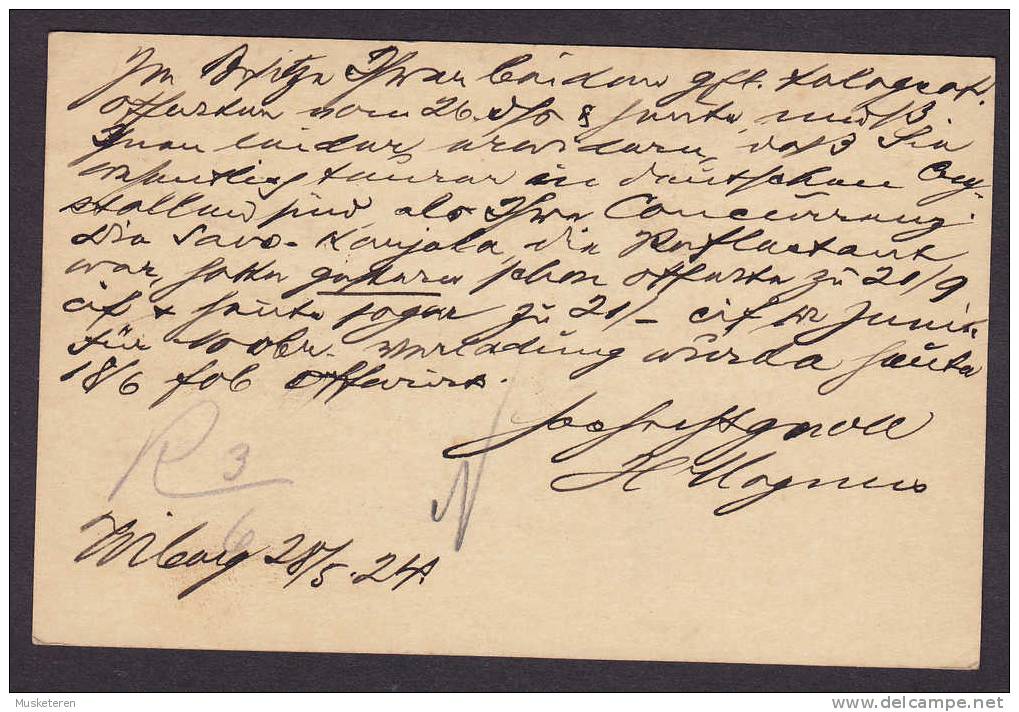 Im Besitze Ihrer beiden gfl. telegraf.
Offerten vom 26. dso & heute, muß
Ihnen leider erwidern, daß Sie
wesentlich teurer in deutschen
stellen sind als Ihre Concurrenz.
Die Savo-Karjala, die Reflectant
war, hatte gestern schon Offerte zu 21/9
cif & heute sogar zu 21/- cif Juni.
für Verladung würde heute
18/6 fob offeriert.
Hochachtungsvoll
H Magnus
R 3
6
Wiborg 28/5. 24.
Musketeren
www.delcampe.net